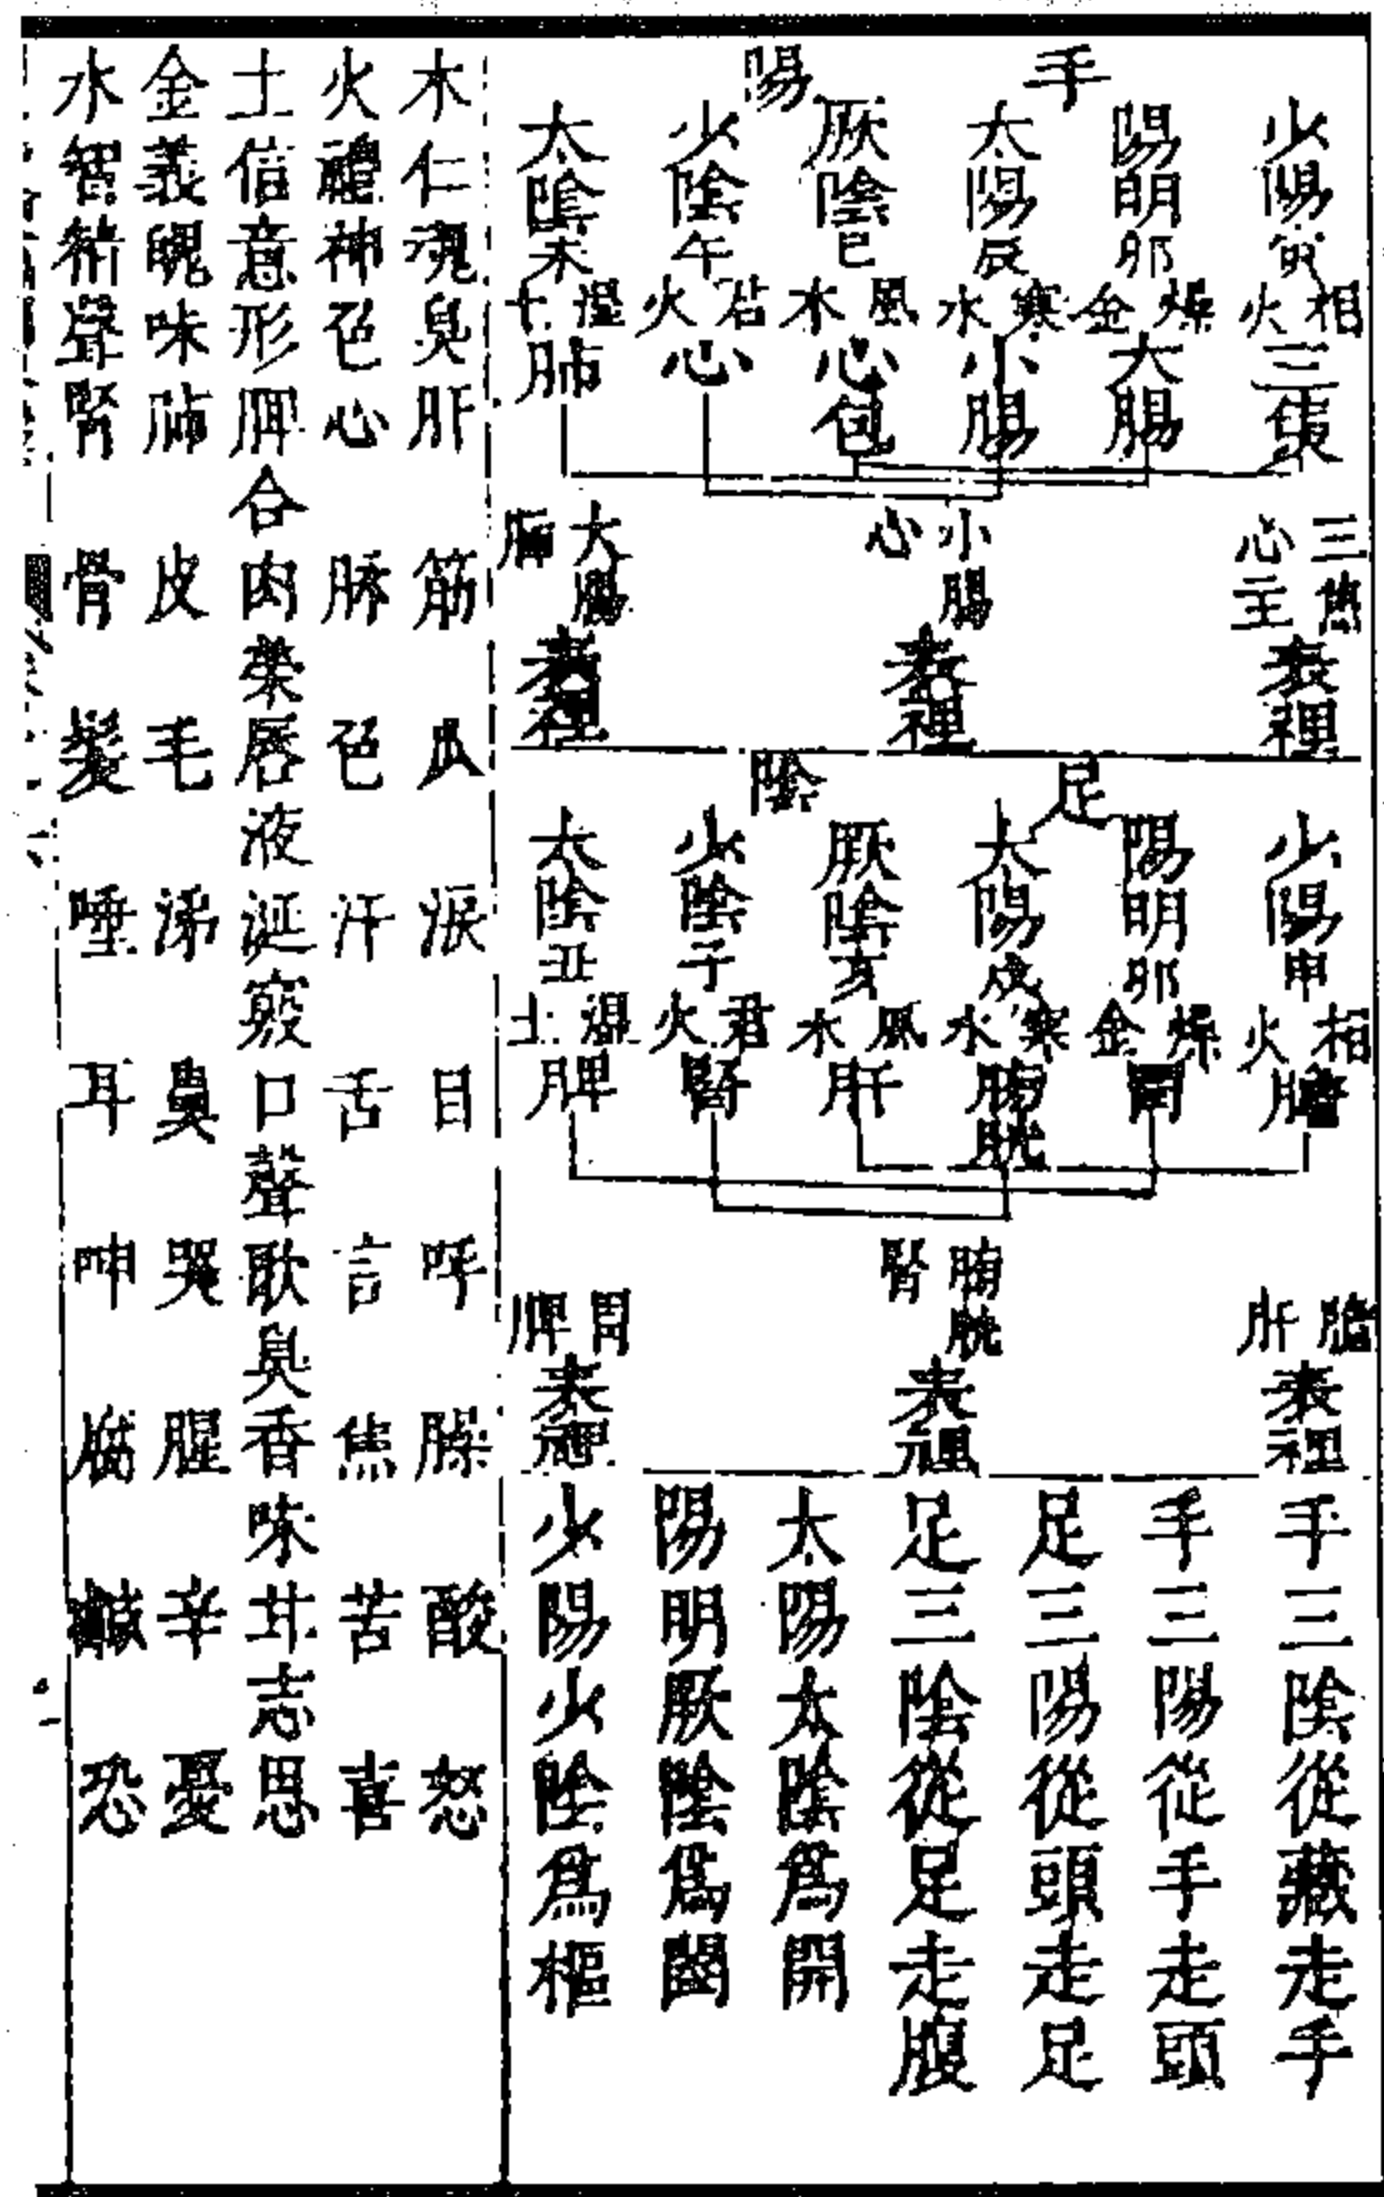 手
陽
少陽寅相火三焦
陽明卯燥金大腸
太陽辰寒水小腸
厥陰巳風木心包
少陰午君火心
太陰未濕土肺
三焦心主表裡
小腸心表裡
大腸肺表裡
足
陰
少陽申相火膽
陽明卯燥金胃
太陽戌寒水膀胱
厥陰亥風木肝
少陰子君火腎
太陰丑濕土脾
膽肝表裡
膀胱腎表裡
胃脾表裡
手三陰從藏走手
手三陽從手走頭
足三陽從頭走足
足三陰從足走腹
太陽太陰為開
陽明厥陰為闔
少陽少陰為樞
木仁魂臭肝筋爪淚目呼臊酸怒
火禮神色心脉色汗舌言焦苦喜
土信意形脾合肉榮唇液涎竅口聲歌臭香味甘志思
金義魄味肺皮毛涕鼻哭腥辛憂
水智精聲腎骨髮唾耳呻腐鹹恐